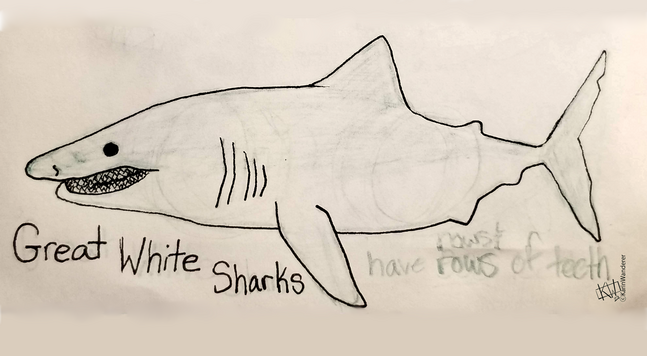 Great White Sharks
have rows of teeth
©KarinWanderer